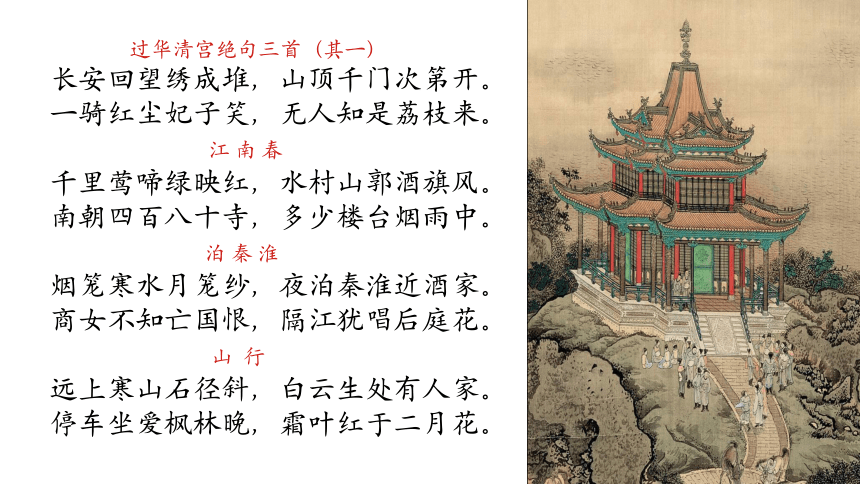 过华清宫绝句三首（其一）
长安回望绣成堆，山顶千门次第开。
一骑红尘妃子笑，无人知是荔枝来。
江南春
千里莺啼绿映红，水村山郭酒旗风。
南朝四百八十寺，多少楼台烟雨中。
泊秦淮
烟笼寒水月笼纱，夜泊秦淮近酒家。
商女不知亡国恨，隔江犹唱后庭花。
山 行
远上寒山石径斜，白云生处有人家。
停车坐爱枫林晚，霜叶红于二月花。